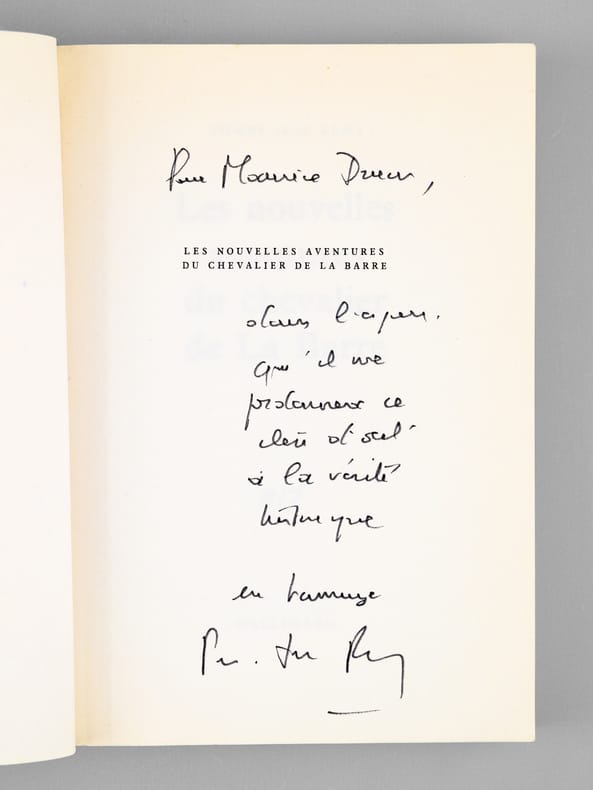 Pour Maurice Druon,
LES NOUVELLES AVENTURES
DU CHEVALIER DE LA BARRE
dans l'espoir
qu'il me
pardonnera ce
clin d'œil
à la vérité
historique
en hommage